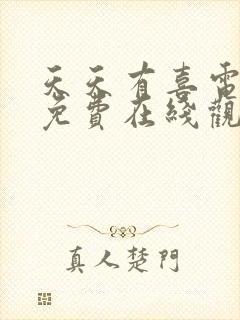 天天有喜電
免費在綫觀
真人楚門